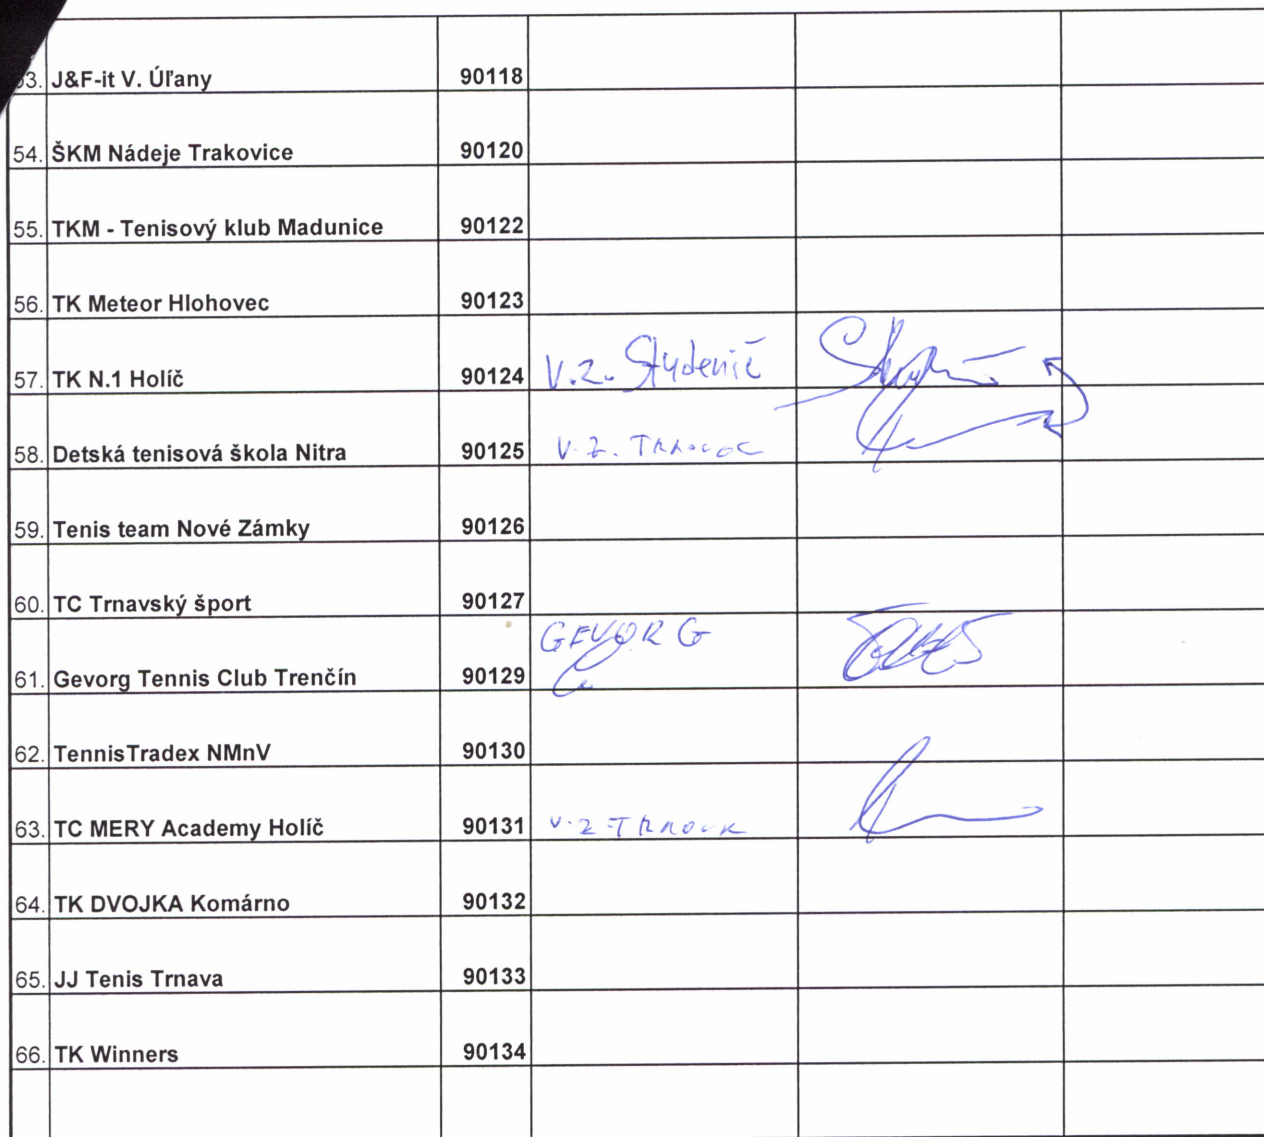 53. J&F-it V. Úľany 90118
54. ŠKM Nádeje Trakovice 90120
55. TKM - Tenisový klub Madunice 90122
56. TK Meteor Hlohovec 90123
57. TK N.1 Holíč 90124 V.Z. Študenič
58. Detská tenisová škola Nitra 90125 V.Z.
59. Tenis team Nové Zámky 90126
60. TC Trnavský šport 90127
61. Gevorg Tennis Club Trenčín 90129 GEVORG
62. TennisTradex NMnV 90130
63. TC MERY Academy Holíč 90131 V.Z
64. TK DVOJKA Komárno 90132
65. JJ Tenis Trnava 90133
66. TK Winners 90134